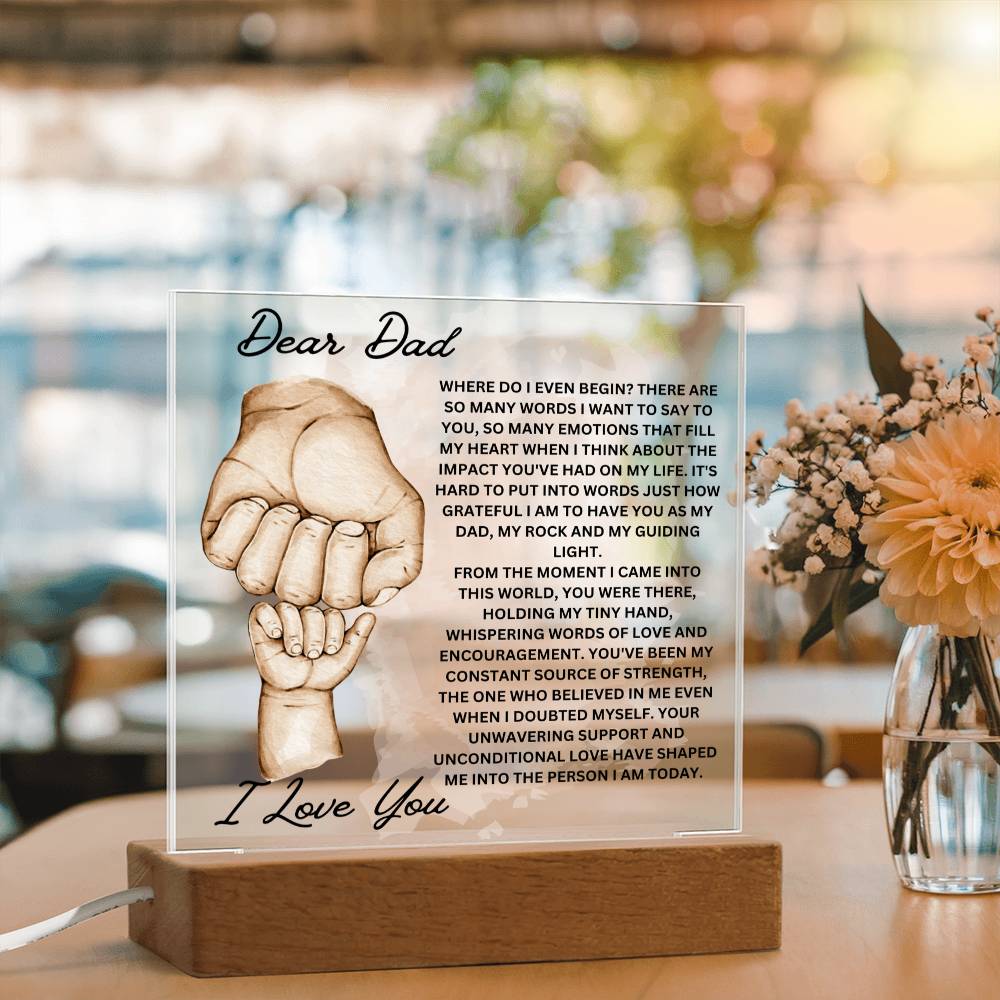 Dear Dad
WHERE DO I EVEN BEGIN? THERE ARE
SO MANY WORDS I WANT TO SAY TO
YOU, SO MANY EMOTIONS THAT FILL
MY HEART WHEN I THINK ABOUT THE
IMPACT YOU'VE HAD ON MY LIFE. IT'S
HARD TO PUT INTO WORDS JUST HOW
GRATEFUL I AM TO HAVE YOU AS MY
DAD, MY ROCK AND MY GUIDING
LIGHT.
FROM THE MOMENT I CAME INTO
THIS WORLD, YOU WERE THERE,
HOLDING MY TINY HAND,
WHISPERING WORDS OF LOVE AND
ENCOURAGEMENT. YOU'VE BEEN MY
CONSTANT SOURCE OF STRENGTH,
THE ONE WHO BELIEVED IN ME EVEN
WHEN I DOUBTED MYSELF. YOUR
UNWAVERING SUPPORT AND
UNCONDITIONAL LOVE HAVE SHAPED
ME INTO THE PERSON I AM TODAY.
I Love You